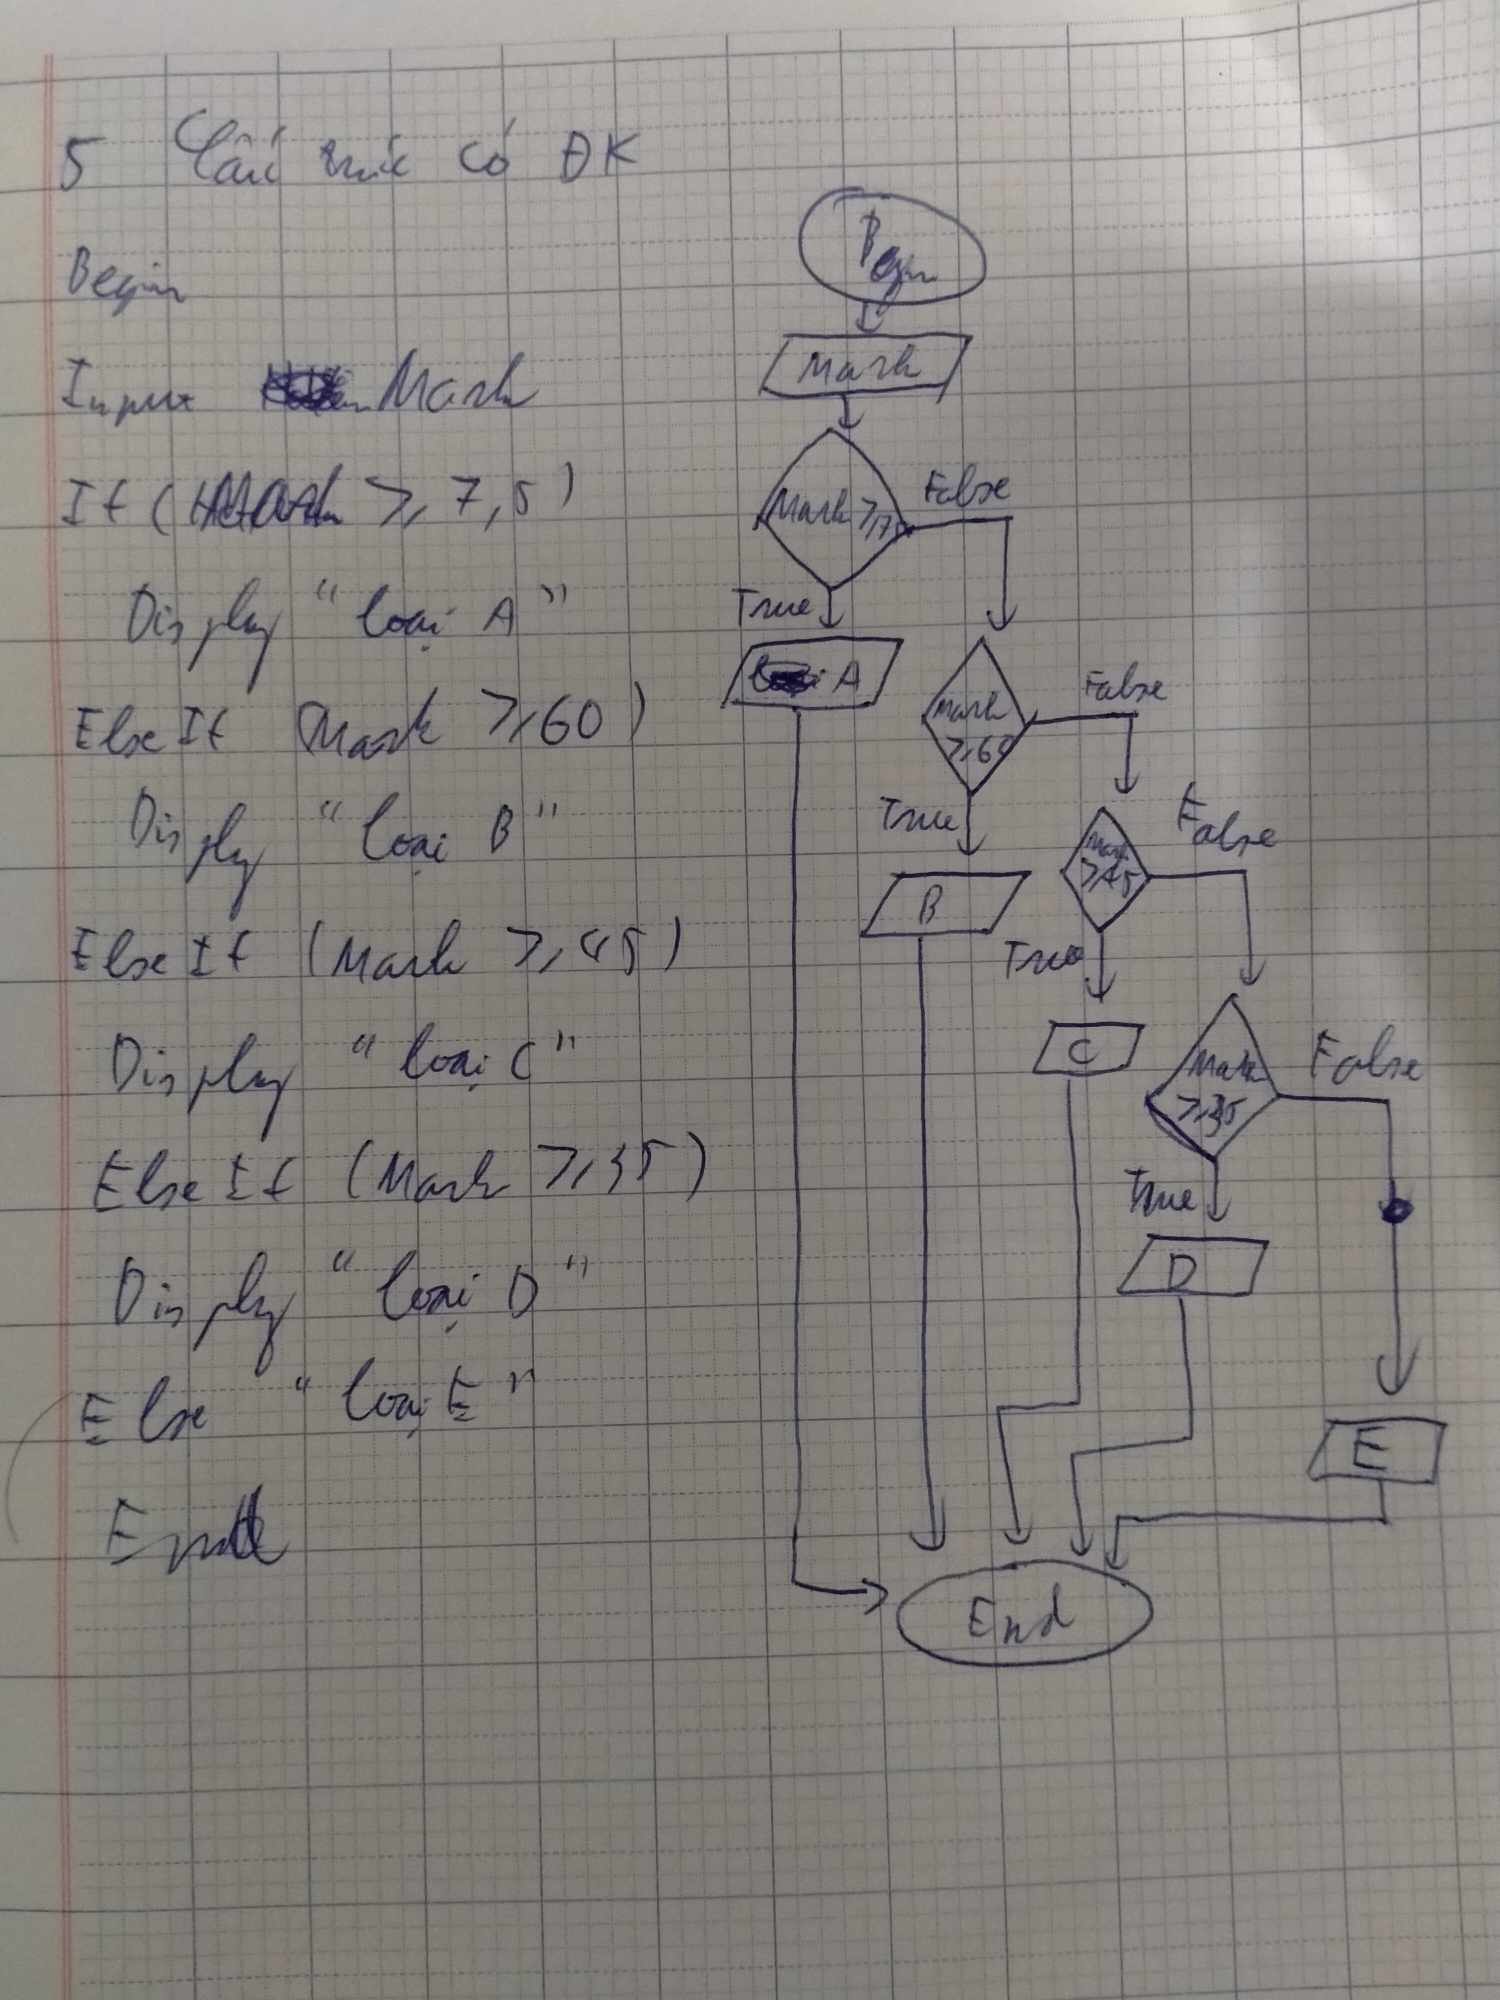 5 Cấu trúc có ĐK
Begin
Input Mark
If (Mark ≥ 7,5)
Display "loại A"
Else If (Mark ≥ 60)
Display "loại B"
Else If (Mark ≥ 45)
Display "loại C"
Else If (Mark ≥ 35)
Display "loại D"
Else "loại E"
End
Begin
Mark
Mark ≥ 75
False
True
A
Mark
≥ 60
False
True
B
Mark
≥ 45
False
True
C
Mark
≥ 35
False
True
D
E
End